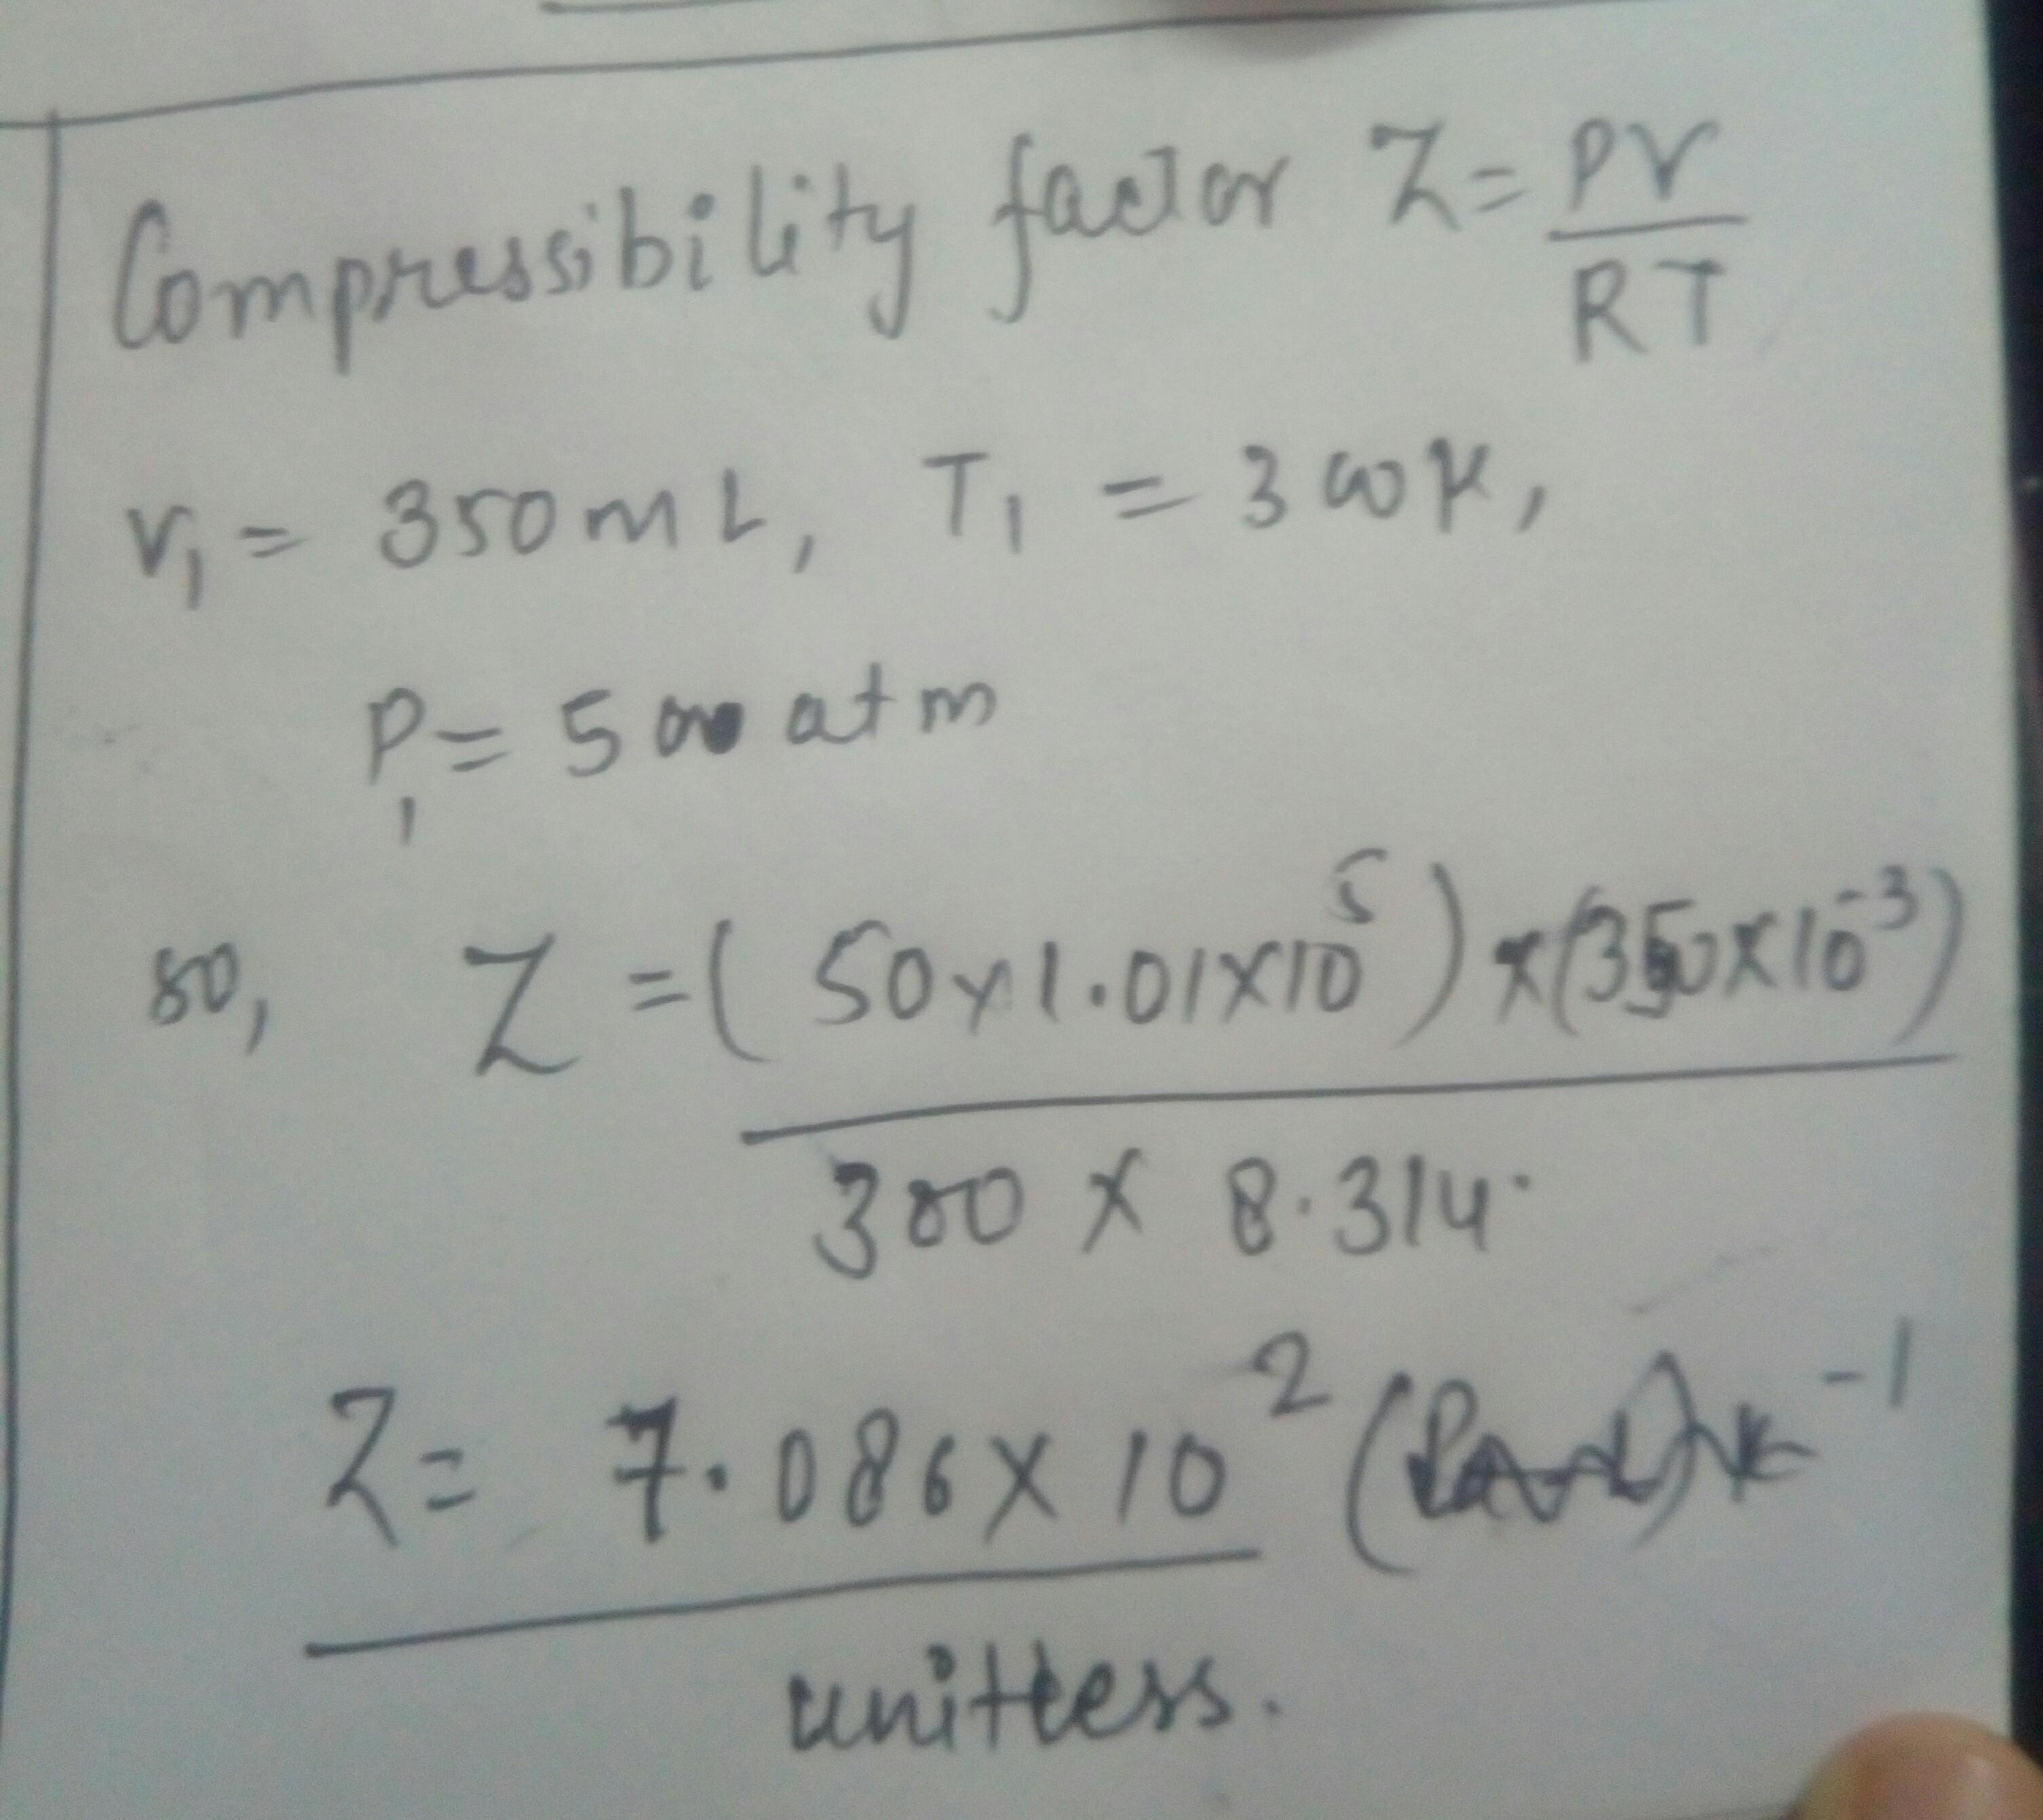 Compressibility factor Z = PV / RT
V₁ = 350 mL, T₁ = 300K,
P₁ = 50 atm
so, Z = (50×1.01×10⁵) × (350×10⁻³)
300 × 8.314
Z = 7.086 × 10²
unitless.